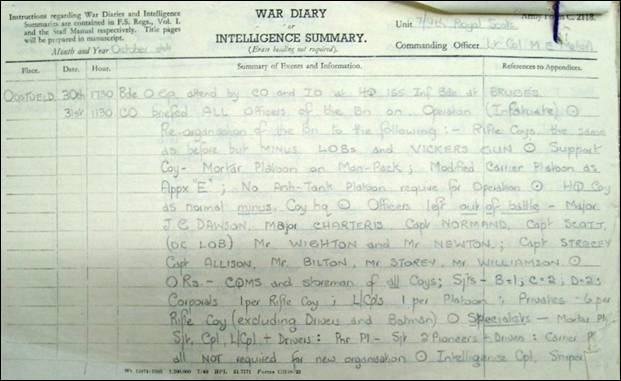 Instructions regarding War Diaries and Intelligence
Summaries are contained in F.S. Regs., Vol. I.
and the Staff Manual respectively. Title pages
will be prepared in manuscript.
Month and Year October
WAR DIARY
or
INTELLIGENCE SUMMARY.
(Erase heading not required).
Army Form C. 2118.
Unit Royal Scots
Commanding Officer Lt Col M.E.
Place. Date. Hour. Summary of Events and Information. References to Appendices.
30th 1730 Bde O Gp. attend by CO and IO at HQ 155 Inf Bde at BRUGES
31st 1130 CO briefed ALL Officers of the Bn on Operation (Infatuate) ⊙
Re-organisation of the Bn to the following :- Rifle Coys the same
as before but MINUS LOBs and VICKERS GUN ⊙ Support
Coy - Mortar Platoon on Man-Pack ; Modified Carrier Platoon as
Appx "E" ; No Anti-Tank Platoon require for Operation ⊙ HQ Coy
as normal minus Coy hq ⊙ Officers left out of battle - Major
J.C. DAWSON, Major CHARTERIS, Capt NORMAND, Capt SCOTT,
(OC LOB) Mr WIGHTON and Mr NEWTON ; Capt
Capt ALLISON, Mr BILTON, Mr STOREY, Mr WILLIAMSON ⊙
ORs - CQMS and storeman of all Coys ; Sjts - B=1 ; C=2 ; D=2 ;
Corporals 1 per Rifle Coy ; L/Cpls 1 per Platoon ; Privates - 6 per
Rifle Coy (excluding Drivers and Batman) ⊙ Specialists - Mortar Pl
Sjt, Cpl, L/Cpl + Drivers : Pnr Pl - Sjt 2 Pioneers + Driver : Carrier Pl
all NOT required for new organisation ⊙ Intelligence Cpl, Sniper